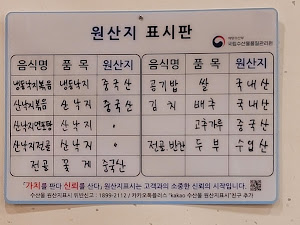 원산지 표시판
해양수산부
국립수산물품질관리원
음식명 품목 원산지
냉동낙지볶음 냉동낙지 중국산
산낙지볶음 산낙지 중국산
산낙지연포탕 산낙지 〃
산낙지전골 산낙지 〃
전골 꽃게 중국산
음식명 품목 원산지
공기밥 쌀 국내산
김치 배추 국내산
고추가루 중국산
전골반찬 두부 수입산
“가치를 판다 신뢰를 산다” 원산지표시는 고객과의 소중한 신뢰의 시작입니다.
수산물 원산지표시 위반신고 : 1899-2112 / 카카오톡플러스 "kakao 수산물 원산지표시"친구 추가